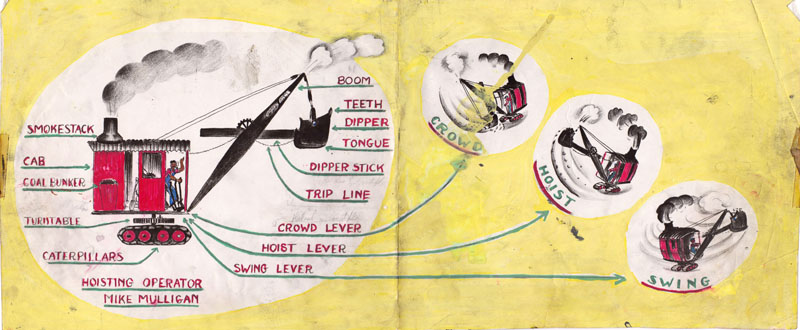 BOOM
TEETH
DIPPER
TONGUE
DIPPER STICK
TRIP LINE
SMOKESTACK
CAB
COAL BUNKER
TURNTABLE
CATERPILLARS
CROWD LEVER
HOIST LEVER
SWING LEVER
HOISTING OPERATOR
MIKE MULLIGAN
CROWD
HOIST
SWING